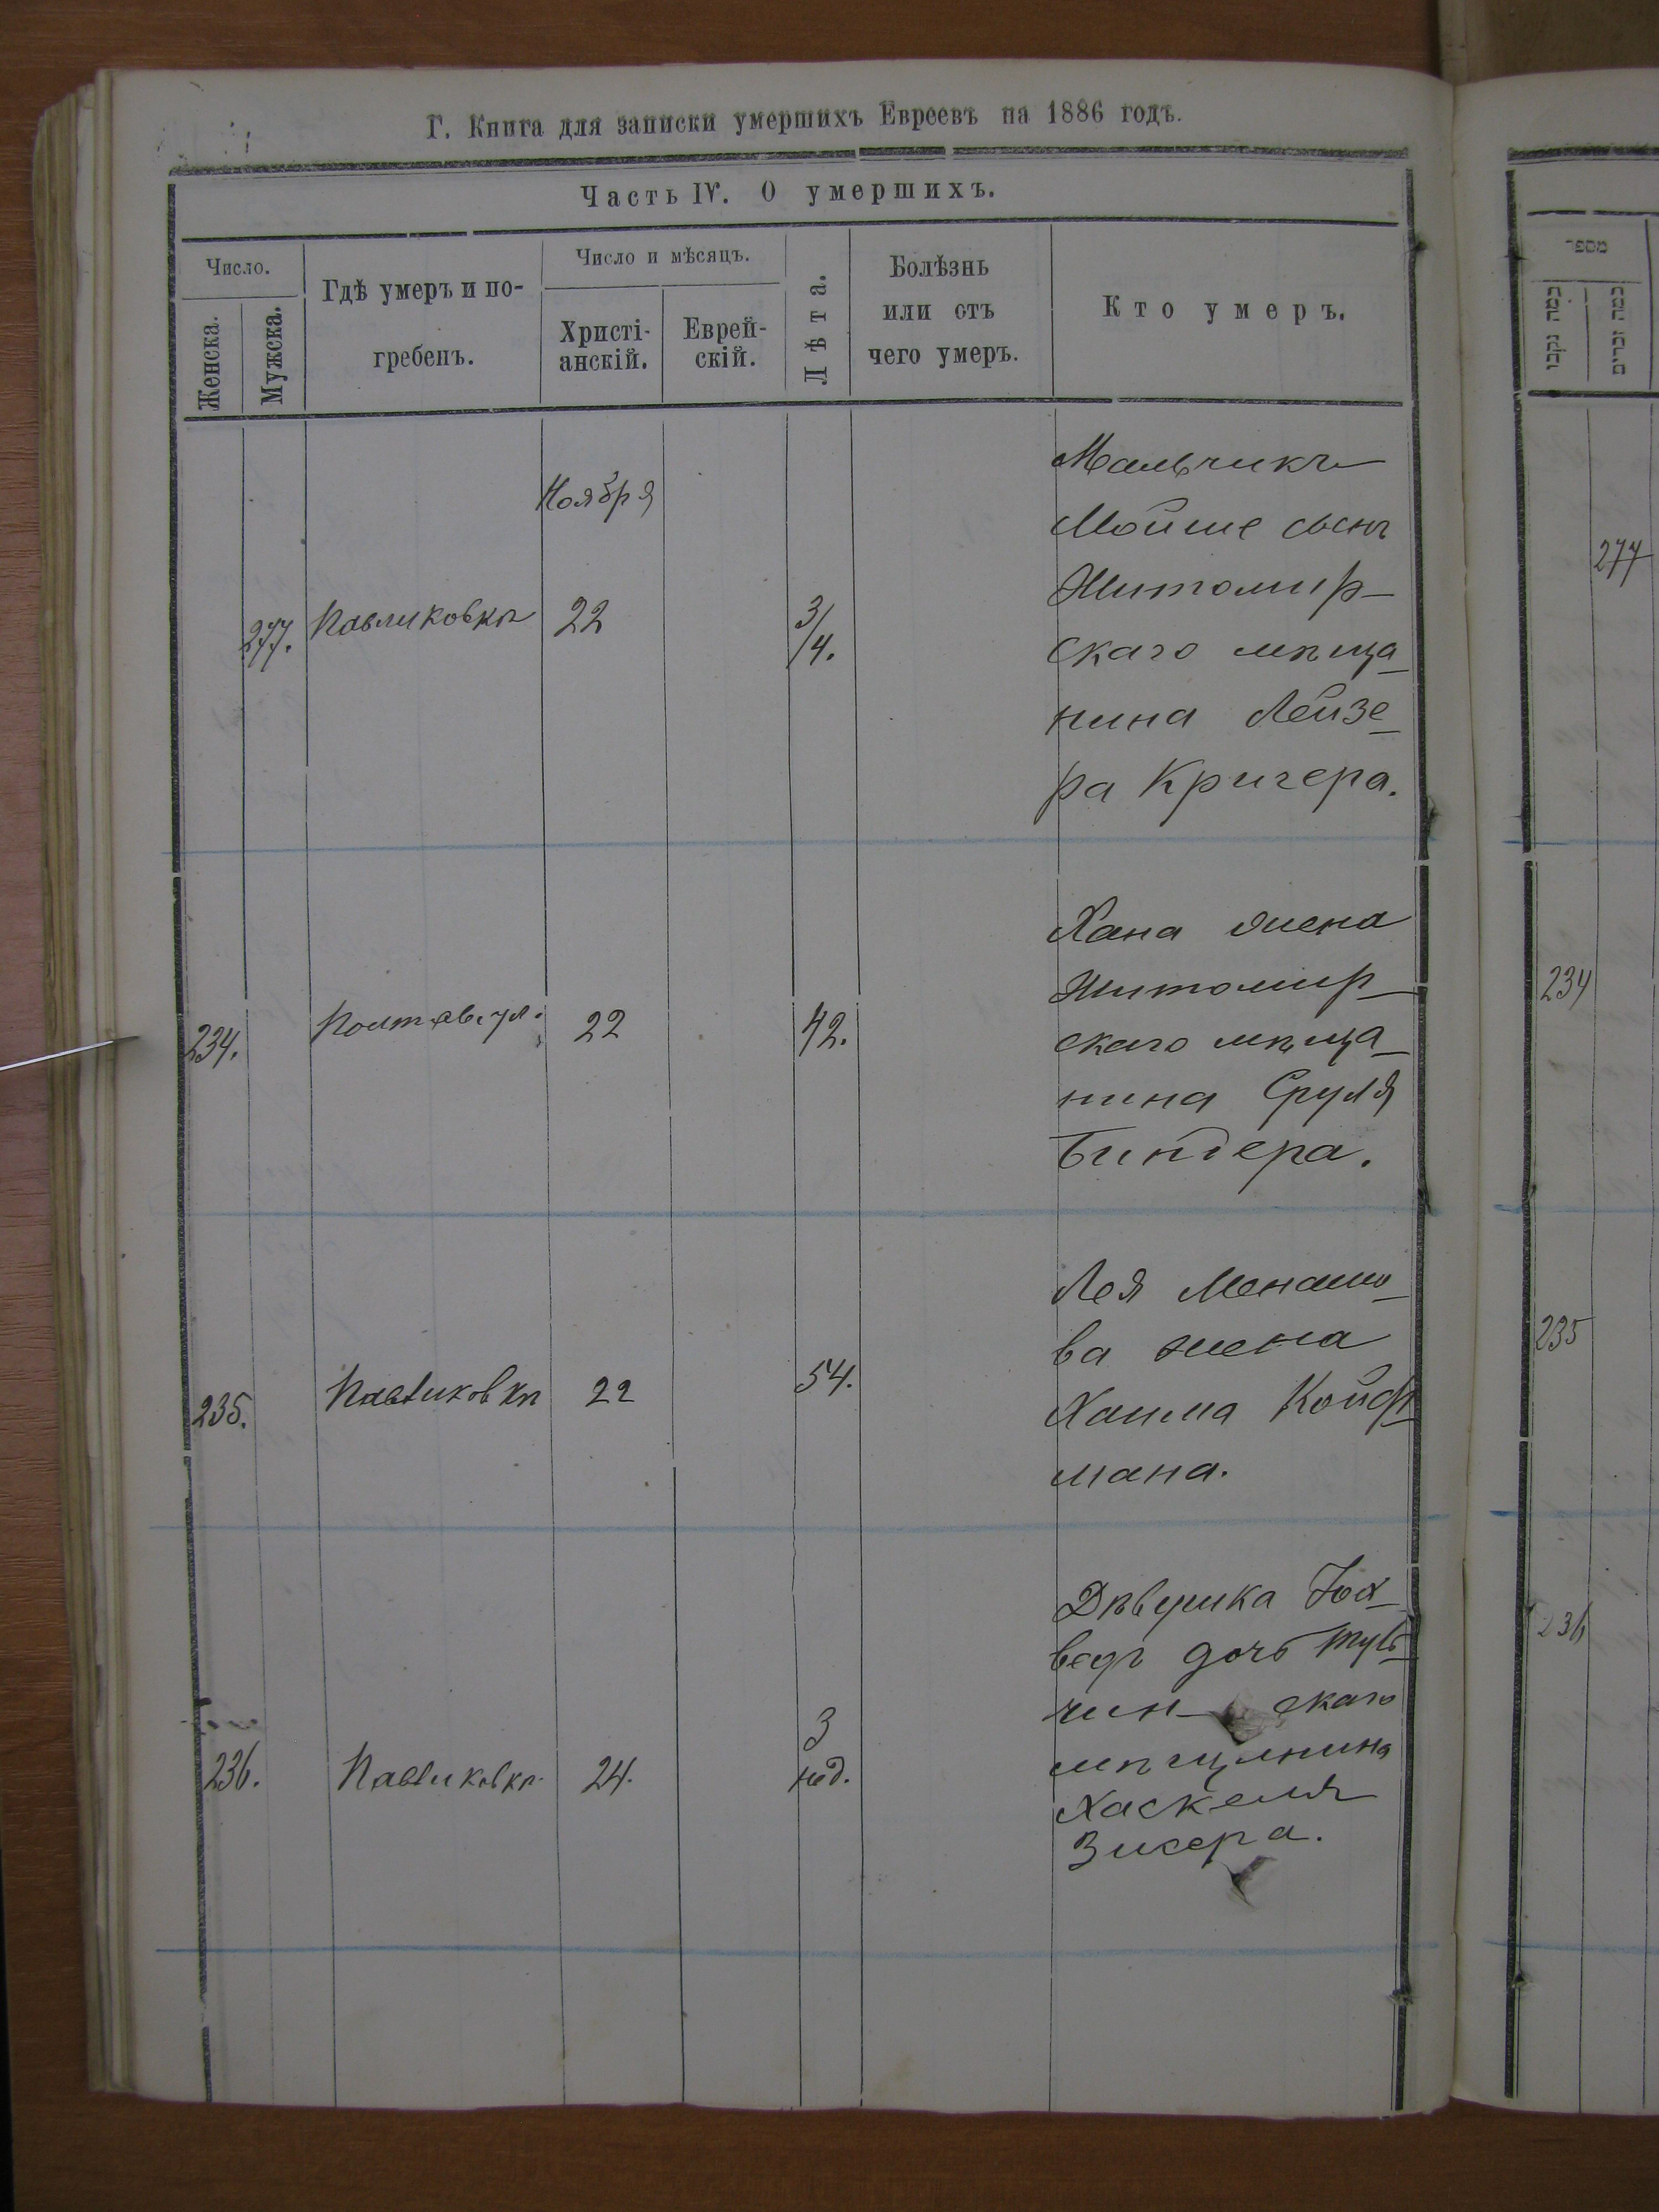 Г. Книга для записки умершихъ Евреевъ на 1886 годъ.
Часть IV. О умершихъ.
Число.
Женска.
Мужска.
Гдѣ умеръ и по-
гребенъ.
Число и мѣсяцъ.
Христі-
анскій.
Еврей-
скій.
Лѣта.
Болѣзнь
или отъ
чего умеръ.
Кто умеръ.
Ноября
277.
Павликовкѣ
22
3/4.
Мальчикъ
Мойше сынъ
Житомир-
скаго мѣща-
нина Лейзе-
ра Кригера.
234.
Полтавс. ул.
22
42.
Хана жена
Житомир-
скаго мѣща-
нина Сруля
Биндера.
235.
Павликовкѣ
22
54.
Лея Менашо-
ва жена
Хаима Койф-
мана.
236.
Павликовкѣ
24.
3
нед.
Дѣвушка Іох-
ведъ дочь Туль-
чин- скаго
мѣщанина
Хаскеля
Зисера.
מספר
נקבות
זכרים
277
234
235
236